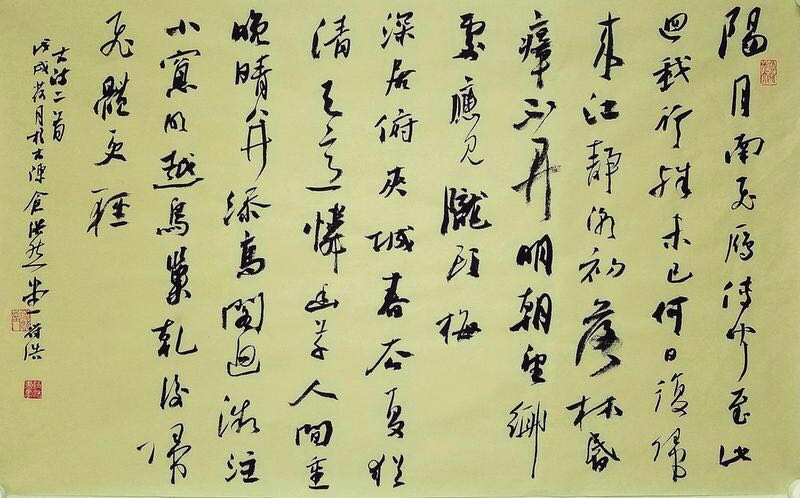 陽月南飛雁傳聞至此
迴我行殊未已何日復歸
來江靜潮初落林昏
瘴不開明朝望鄉
處應見隴頭梅
深居俯夾城春去夏猶
清天意憐幽草人間重
晚晴并添高閣迥微注
小窗明越鳥巢乾後歸
飛體更輕
古詩二首
戊戌荷月於古陳倉